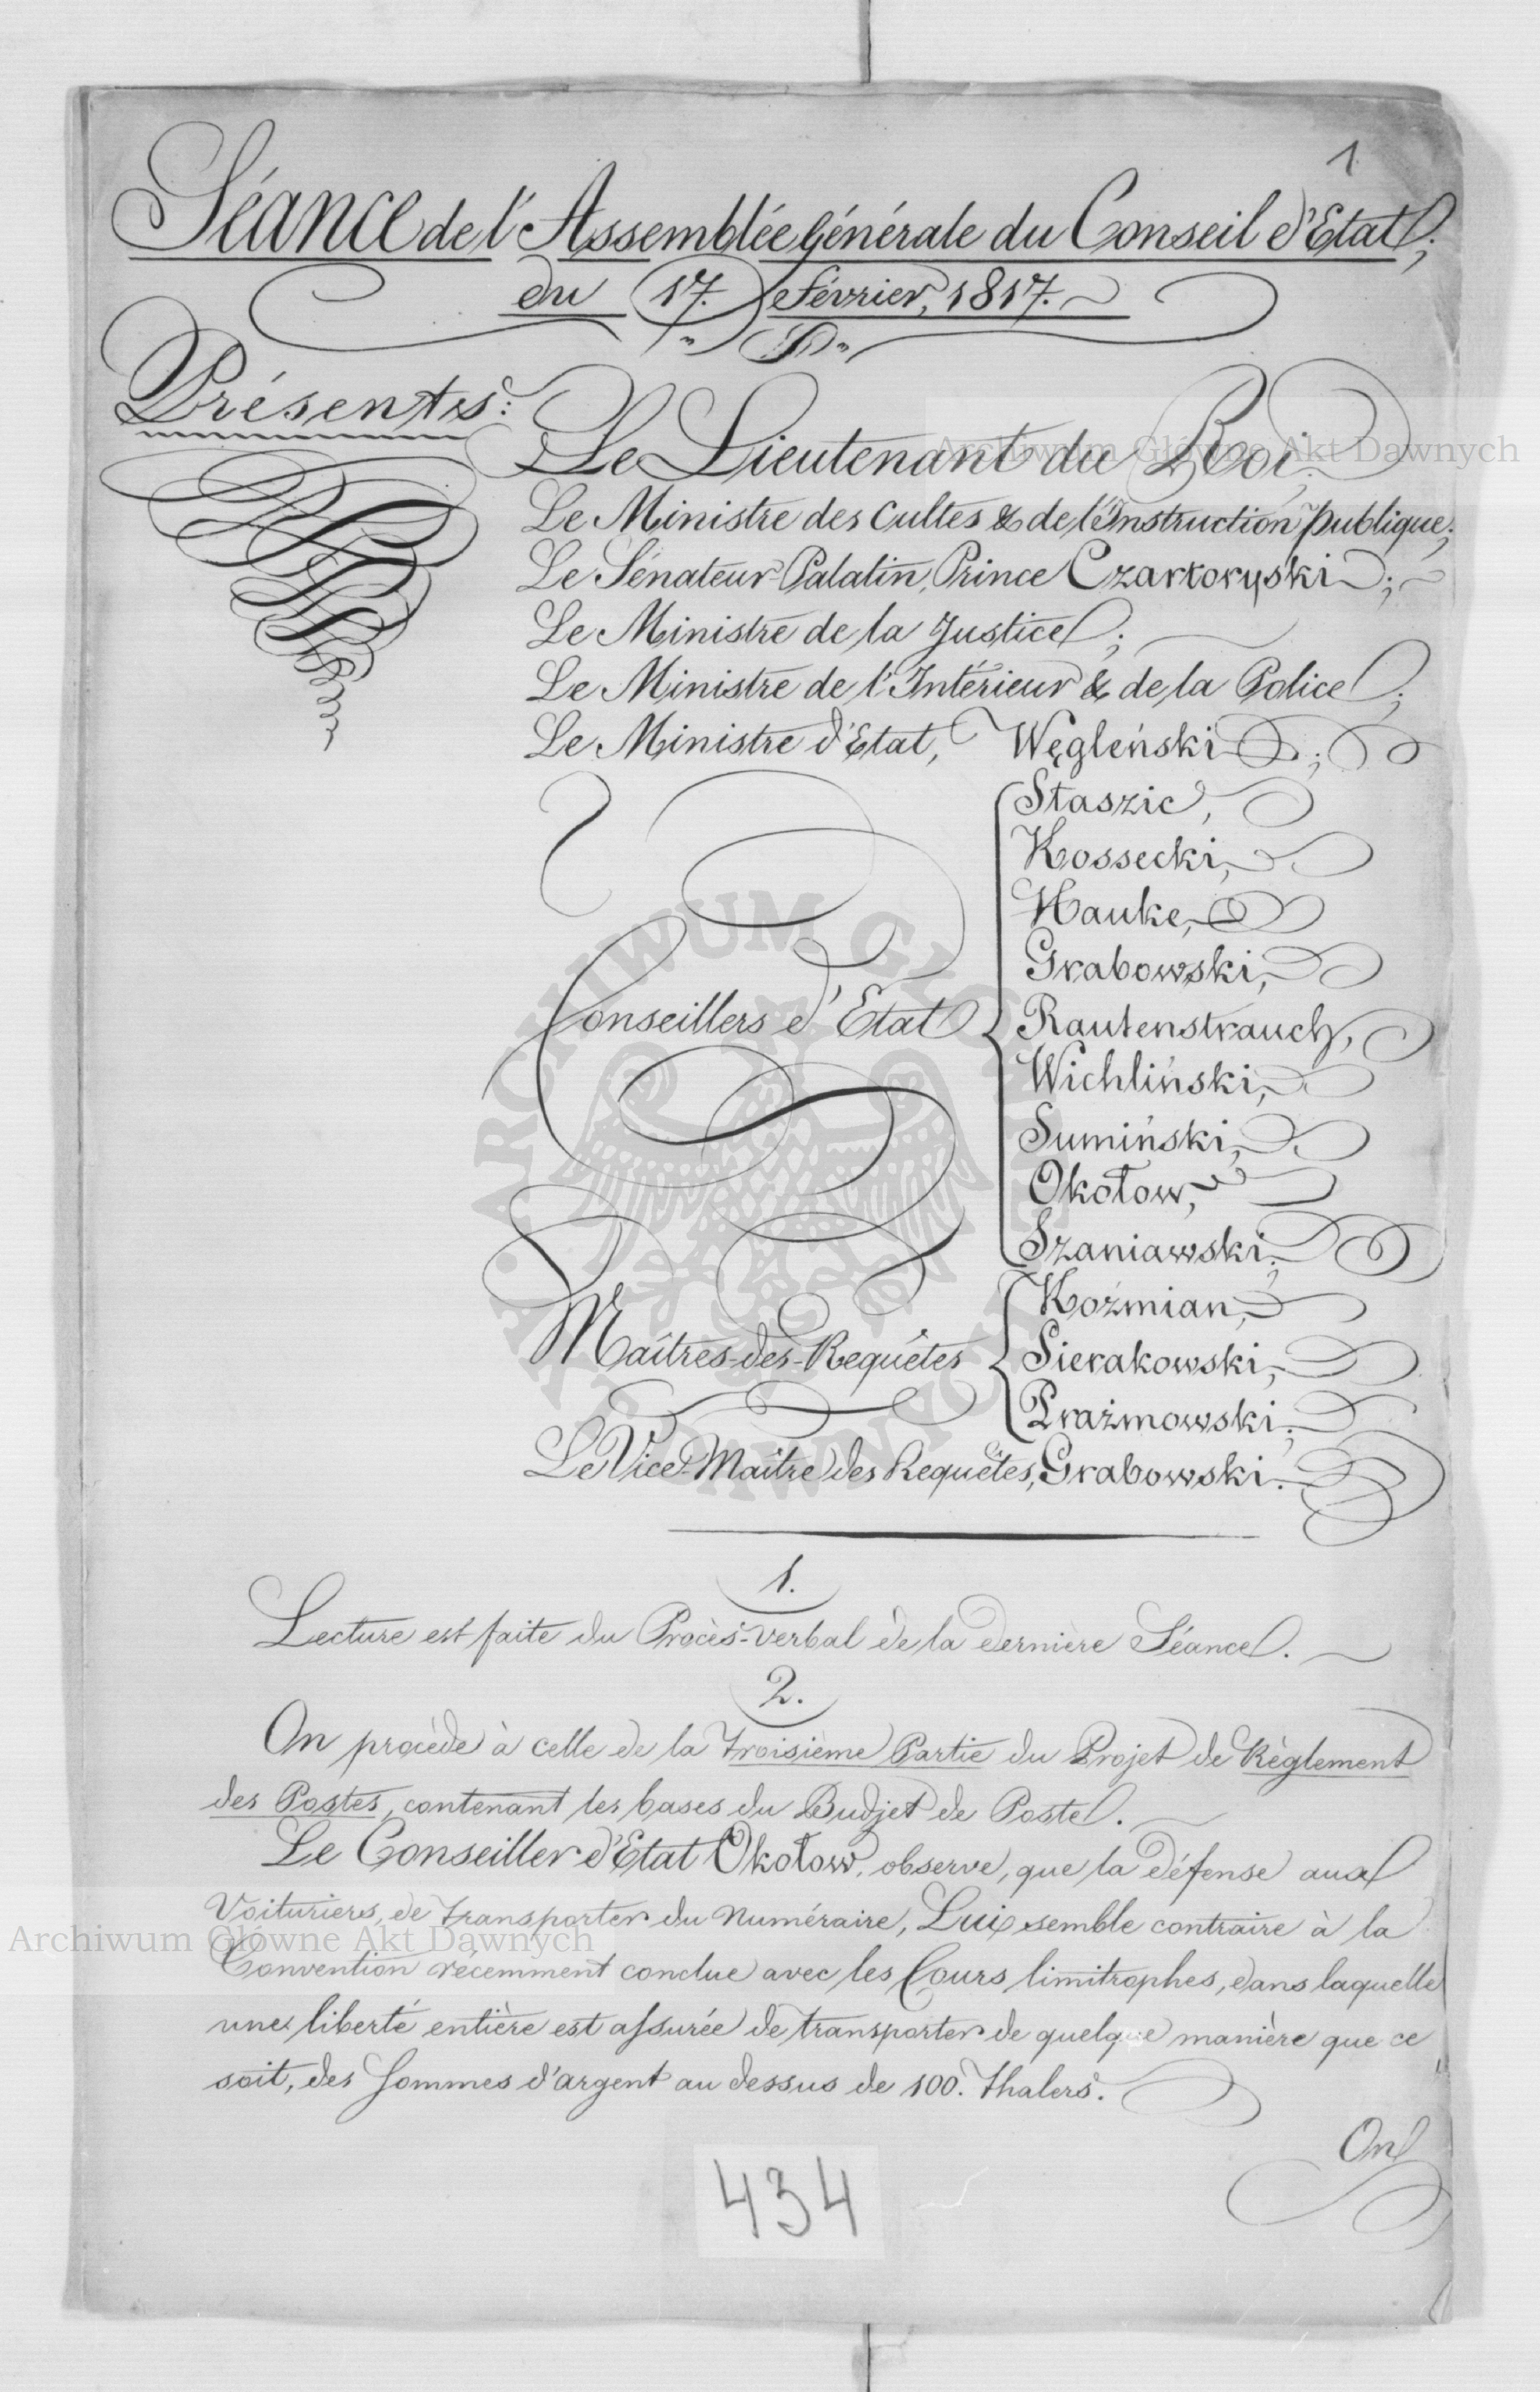 1
Séance de l'Assemblée Générale du Conseil d'Etat,
du 17. Février, 1817.
Présents:
Le Lieutenant du Roi.
Le Ministre des Cultes & de l'Instruction publique;
Le Sénateur Palatin, Prince Czartoryski;
Le Ministre de la Justice;
Le Ministre de l'Intérieur & de la Police;
Le Ministre d'Etat, Węgleński;
Staszic,
Kossecki,
Hauke,
Grabowski,
Conseillers d'Etat Rautenstrauch,
Wichliński,
Sumiński,
Okołow,
Szaniawski;
Koźmian,
Maîtres-des-Requêtes Sierakowski,
Prażmowski;
Le Vice-Maître des Requêtes, Grabowski.
1.
Lecture est faite du Procès-verbal de la dernière Séance.
2.
On procède à celle de la troisième Partie du Projet de Règlement
des Postes, contenant les bases du Budjet de Poste.
Le Conseiller d'Etat Okołow, observe, que la défense aux
Voituriers, de transporter du Numéraire, Lui semble contraire à la
Convention récemment conclue avec les Cours limitrophes, dans laquelle
une liberté entière est assurée de transporter de quelque manière que ce
soit, des Sommes d'argent au dessus de 100. Thalers.
On
434
Archiwum Główne Akt Dawnych
Archiwum Główne Akt Dawnych
ARCHIWUM GŁÓWNE AKT DAWNYCH